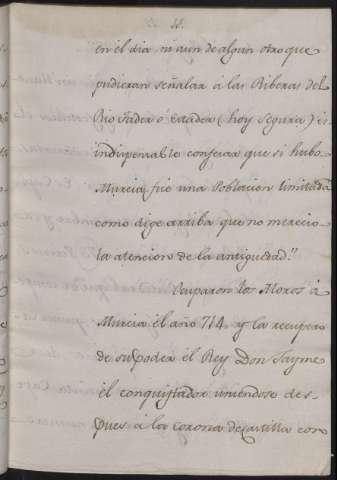 11.
en él dia ni aun de algun otro que
pudieran señalar á las Riberas del
Rio Tader ó Estader (hoy Segura) és
indispensable confesar que si hubo
Murcia fue una Poblacion limitada
como dige arriba que no merecio
la atencion de la antiguedad."
Ocuparon los Moros á
Murcia él año 714. y la recupero
de su poder él Rey Don Jayme
él conquistador uniendose des-
pues á la corona de Castilla con